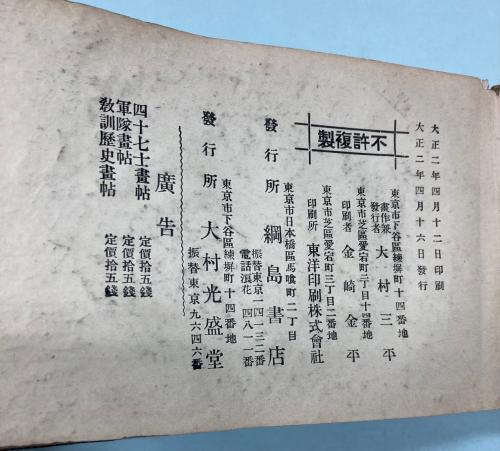 大正二年四月十二日印刷
大正二年四月十六日發行
不許複製
東京市下谷區練塀町十四番地
畫作兼發行者 大村三平
東京市芝區愛宕町三丁目十四番地
印刷者 金崎金平
東京市芝區愛宕町三丁目二番地
印刷所 東洋印刷株式會社
東京市日本橋區馬喰町二丁目
發行所 綱島書店
振替東京一四一三二番
電話浪花 四八一二番
東京市下谷區練塀町十四番地
發行所 大村光盛堂
振替東京九六四六番
廣告
四十七士畫帖 定價拾五錢
軍隊畫帖 定價拾五錢
敎訓歷史畫帖 定價拾五錢